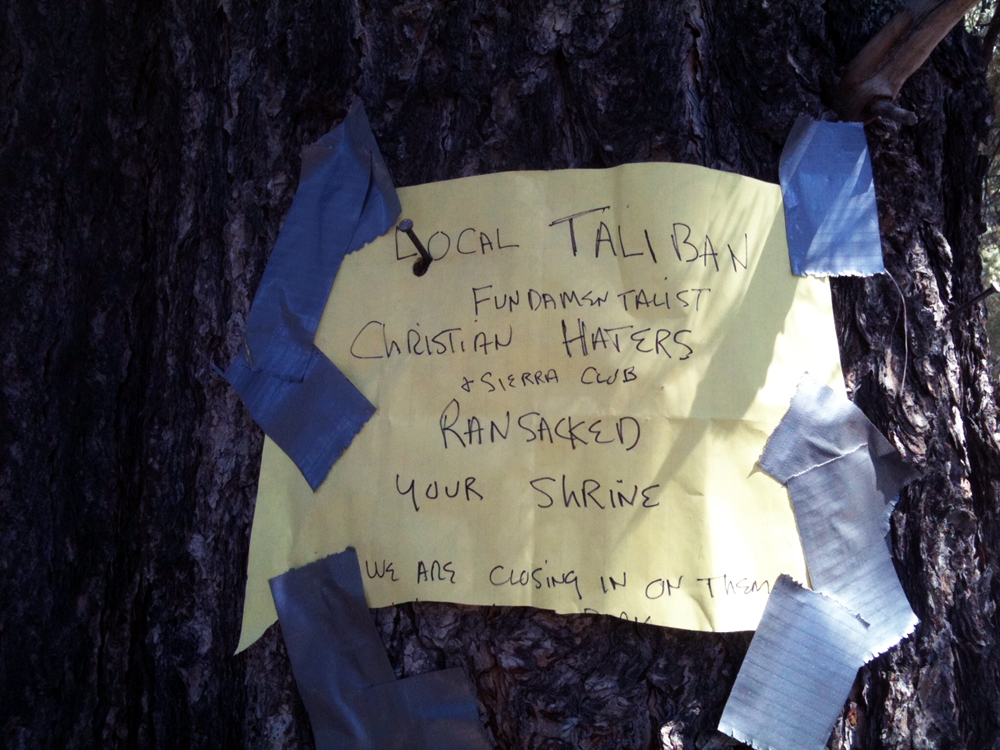 LOCAL TALIBAN
FUNDAMENTALIST
CHRISTIAN HATERS
& SIERRA CLUB
RANSACKED
YOUR SHRINE
WE ARE CLOSING IN ON THEM